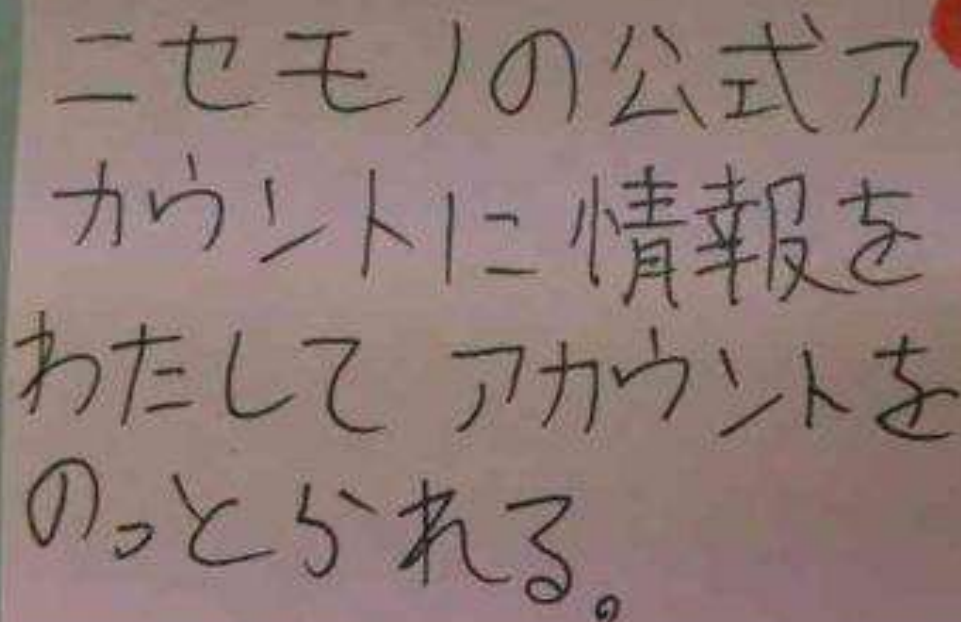 ニセモノの公式ア
カウントに情報を
わたして アカウントを
のっとられる。